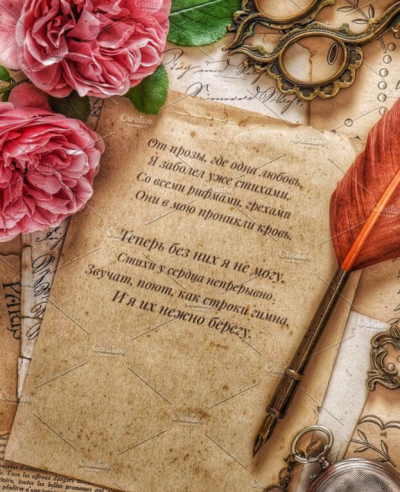 От прозы, где одна любовь,
Я заболел уже стихами.
Со всеми рифмами, грехами
Они в мою проникли кровь.
Теперь без них я не могу.
Стихи у сердца непрерывно.
Звучат, поют, как строки гимна,
И я их нежно берегу.